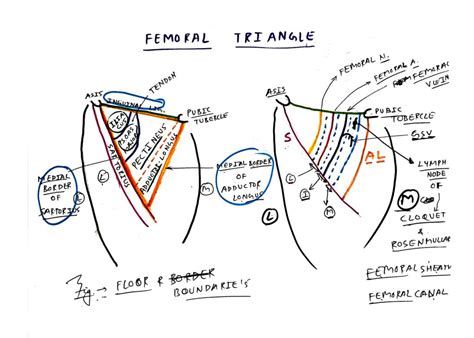 FEMORAL TRIANGLE
TENDON
ASIS
INGUINAL LIG.
PUBIC
TUBERCLE
PSOAS
MAJOR
PECTINEUS
ADDUCTOR LONGUS
SARTORIUS
MEDIAL
BORDER
OF
SARTORIUS
L
M
MEDIAL BORDER
OF
ADDUCTOR
LONGUS
Fig. → FLOOR & BORDER
BOUNDARIE'S
FEMORAL N.
FEMORAL A.
FEMORAL
VEIN
ASIS
PUBIC
TUBERCLE
GSV
S
AL
LYMPH
NODE
OF
CLOQUET
&
ROSENMULLAR
L
I
M
L
M
FEMORAL SHEATH
FEMORAL CANAL